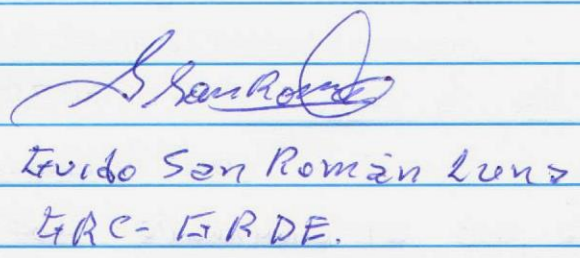 G San Román
Guido San Román Luna
GRC - GRDE.